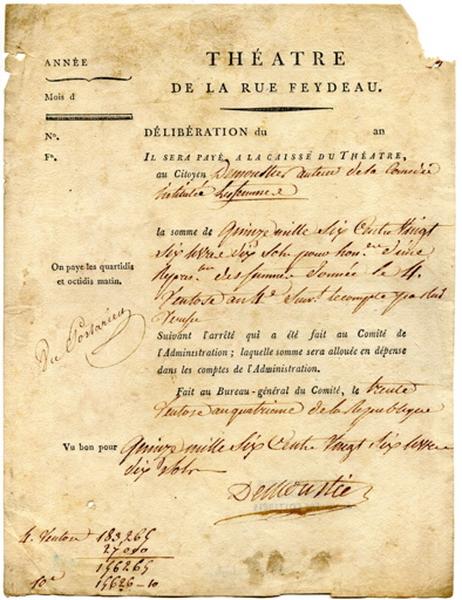 ANNÉE
THÉATRE
DE LA RUE FEYDEAU.
Mois d
N°.
DÉLIBÉRATION du an
F°.
IL SERA PAYÉ, A LA CAISSE DU THÉATRE,
au Citoyen Demoustier auteur de la Comédie
intitulée Les femmes
la somme de Quinze mille Six Cents Vingt
Six livres Six Sols pour hon.
des femmes donnée le 4.
On paye les quartidis
et octidis matin.
Ventose an 4e
Suivant l'arrêté qui a été fait au Comité de
l'Administration ; laquelle somme sera allouée en dépense
dans les comptes de l'Administration.
Fait au Bureau-général du Comité, le trente
Ventose an quatrieme de la République
Vu bon pour Quinze mille Six Cents Vingt Six livres
Six Sols
Demoustier
4. Ventose 183,265
27000
156265
10e 15626-10